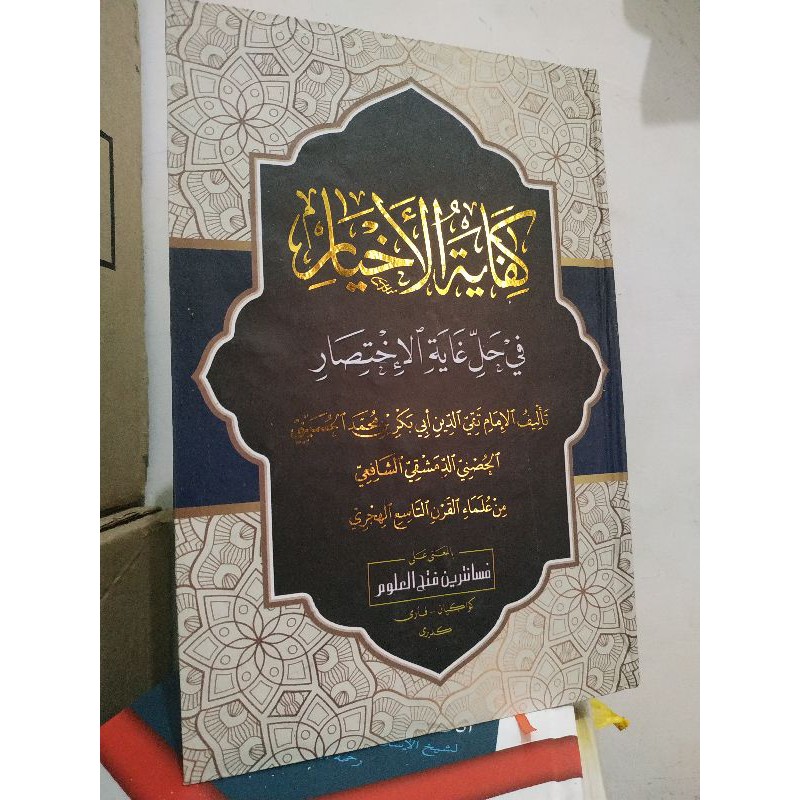 كِفَايَةُ الْأَخْيَارِ
فِيْ حَلِّ غَايَةِ الْإِخْتِصَارِ
تَأْلِيفُ الْإِمَامِ تَقِيِّ الدِّينِ أَبِي بَكْرِ بْنِ مُحَمَّدِ الْحُسَيْنِيِّ
الْحُصْنِيِّ الدِّمَشْقِيِّ الشَّافِعِيِّ
مِنْ عُلَمَاءِ الْقَرْنِ التَّاسِعِ الْهِجْرِيِّ
بالمعنى على
فسانترين فتح العلوم
كواكيان - فاري
كديري
لشيخ